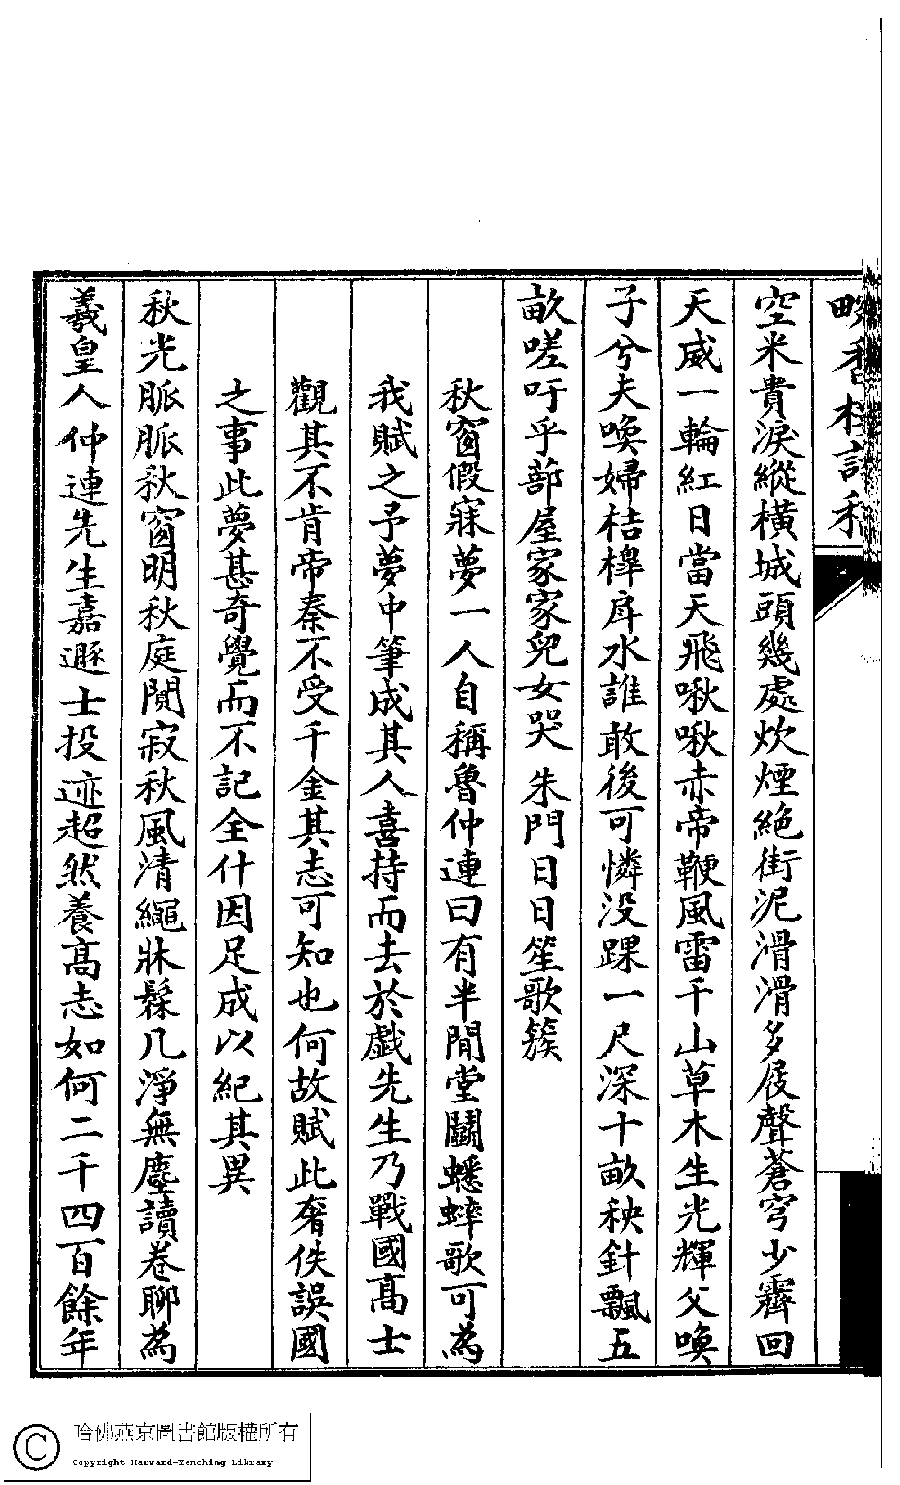 空米貴淚縱橫城頭幾處炊煙絕街泥滑滑多屐聲蒼穹少霽回
天威一輪紅日當天飛啾啾赤帝鞭風雷千山草木生光輝父喚
子兮夫喚婦桔橰戽水誰敢後可憐没踝一尺深十畝秧針飄五
畝嗟吁乎蔀屋家家兒女哭朱門日日笙歌簇
秋窗假寐夢一人自稱魯仲連曰有半閒堂鬭蟋蟀歌可為
我賦之予夢中筆成其人喜持而去於戲先生乃戰國高士
觀其不肯帝秦不受千金其志可知也何故賦此奢佚誤國
之事此夢甚奇覺而不記全什因足成以紀其異
秋光脈脈秋窗明秋庭閴寂秋風清繩牀髹几淨無塵讀卷聊為
羲皇人仲連先生嘉遯士投迹超然養高志如何二千四百餘年
哈佛燕京圖書館版權所有
Copyright Harvard-Yenching Library